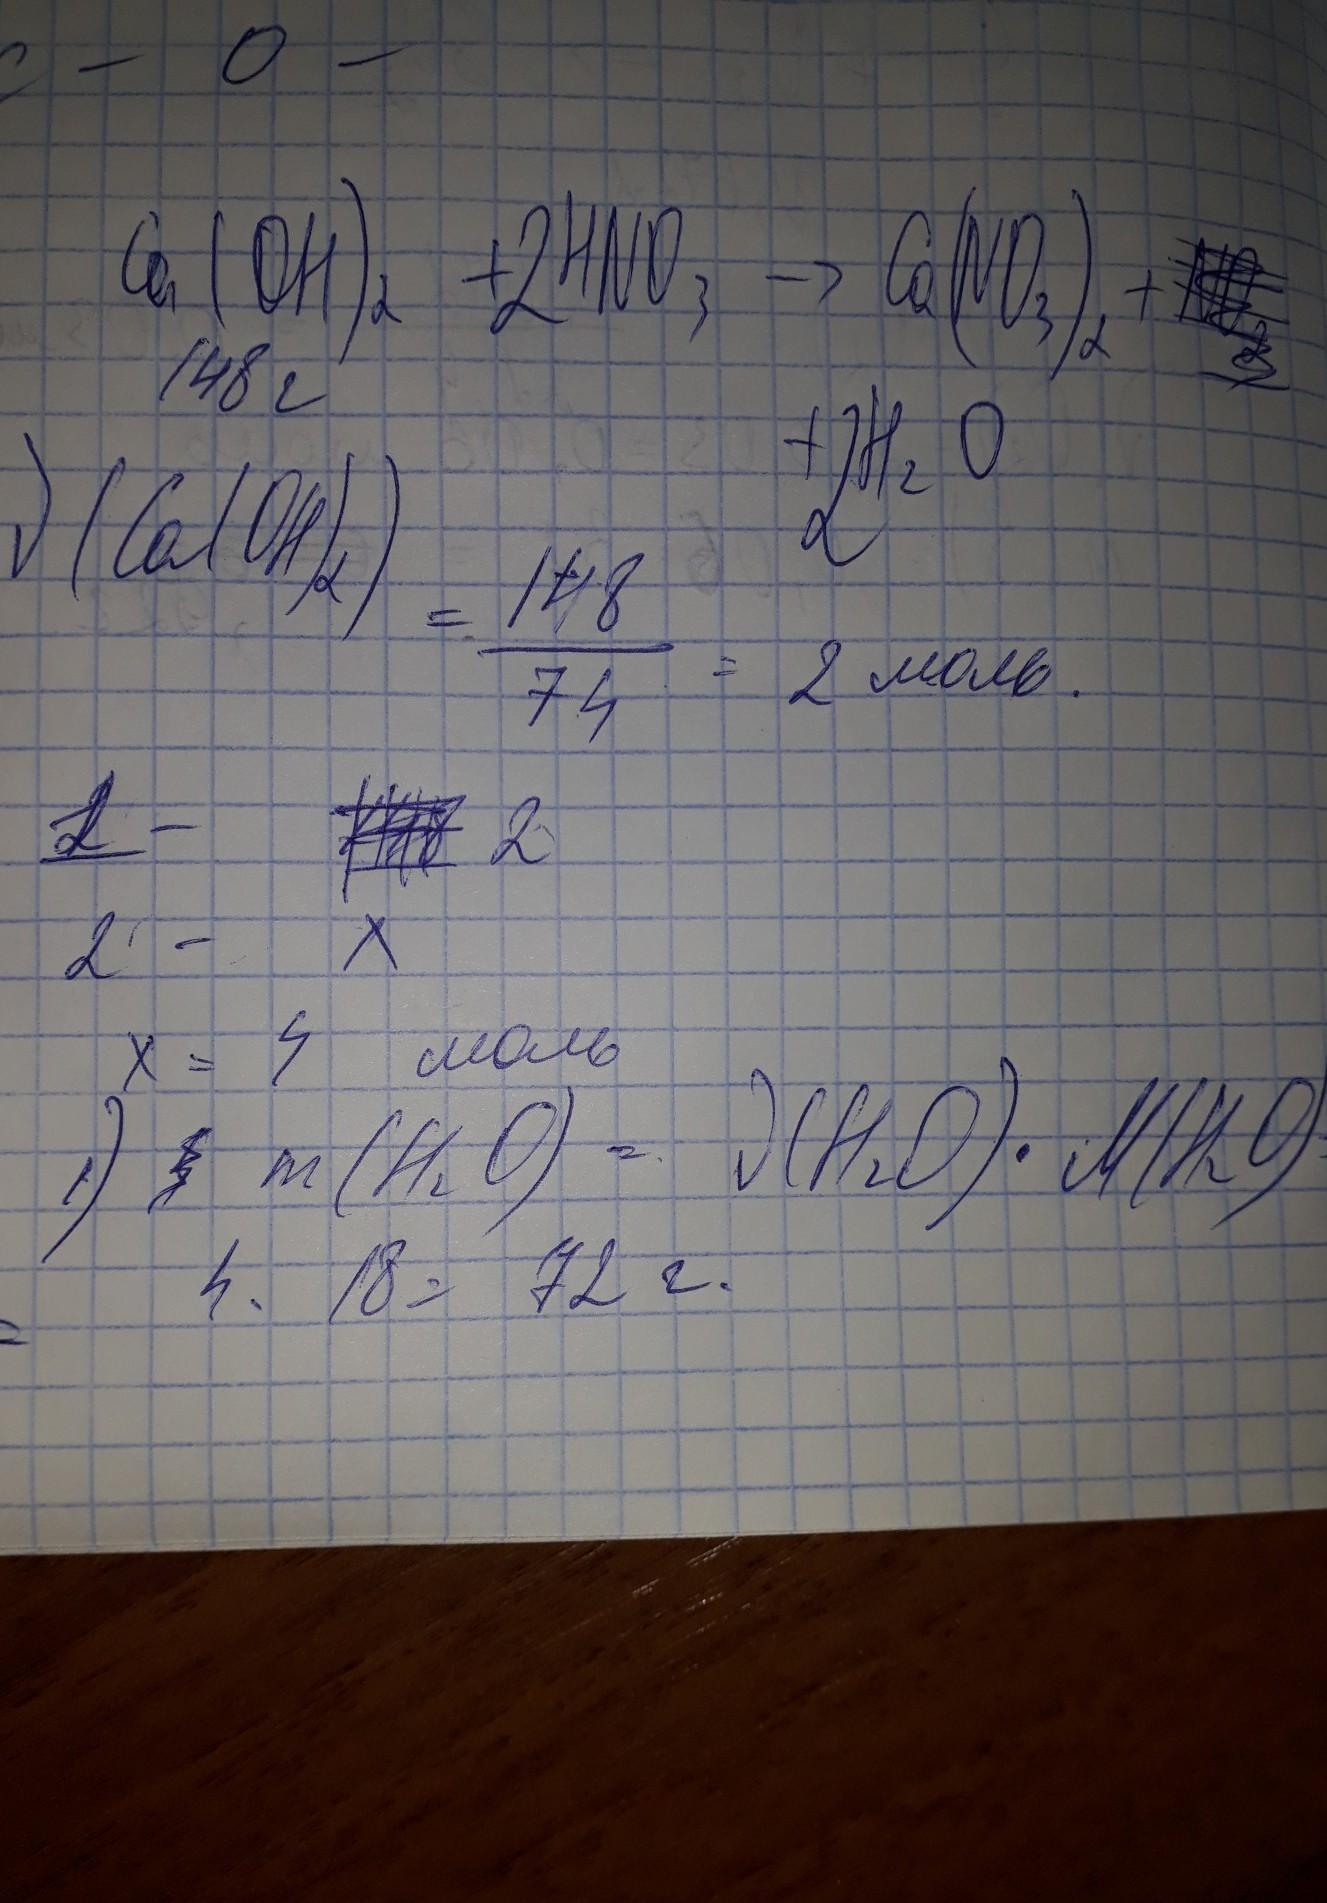 - O -
Ca(OH)₂ + 2HNO₃ → Ca(NO₃)₂ +
148 г
+ 2H₂O
ν(Ca(OH)₂) = 148/74 = 2 моль.
1 - 2
2 - x
x = 4 моль
1) m(H₂O) = ν(H₂O) · M(H₂O) =
4 · 18 = 72 г.
=